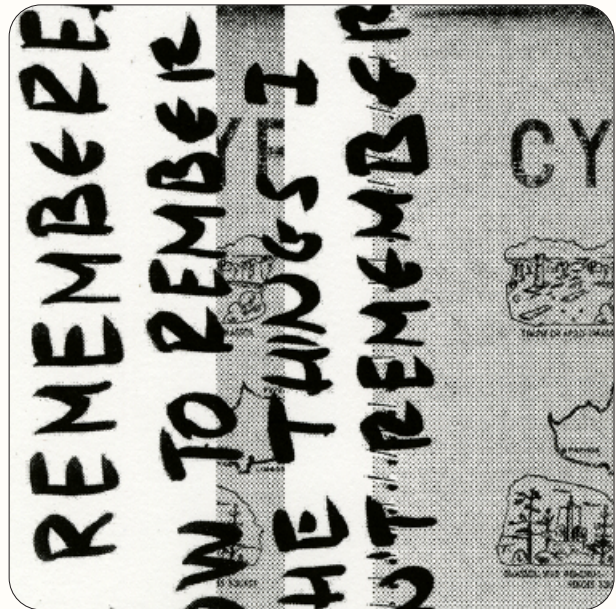 REMEMBERE
OW TO REMBER
HE THINGS I
'T REMEMBER
YE
CY